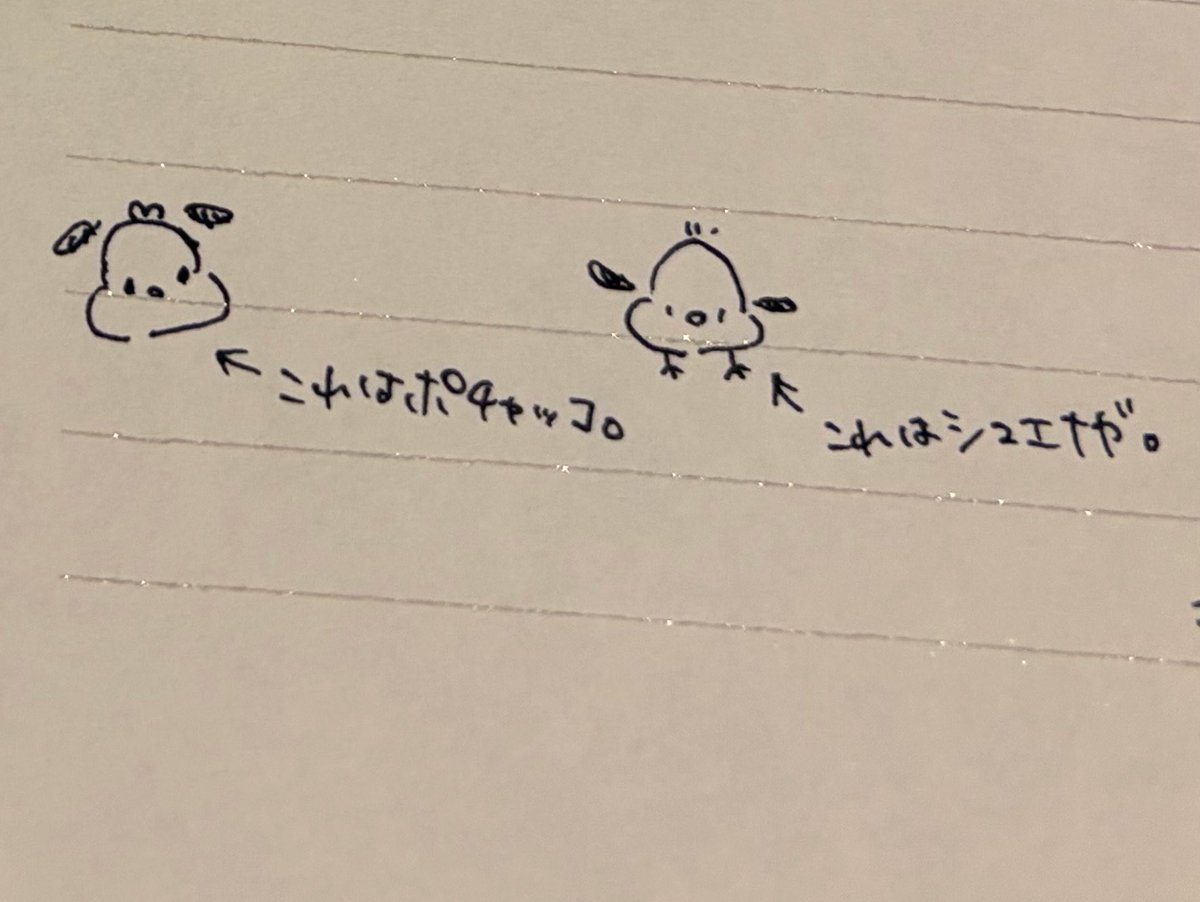 これはポチャッコ。
これはシュエナガ。